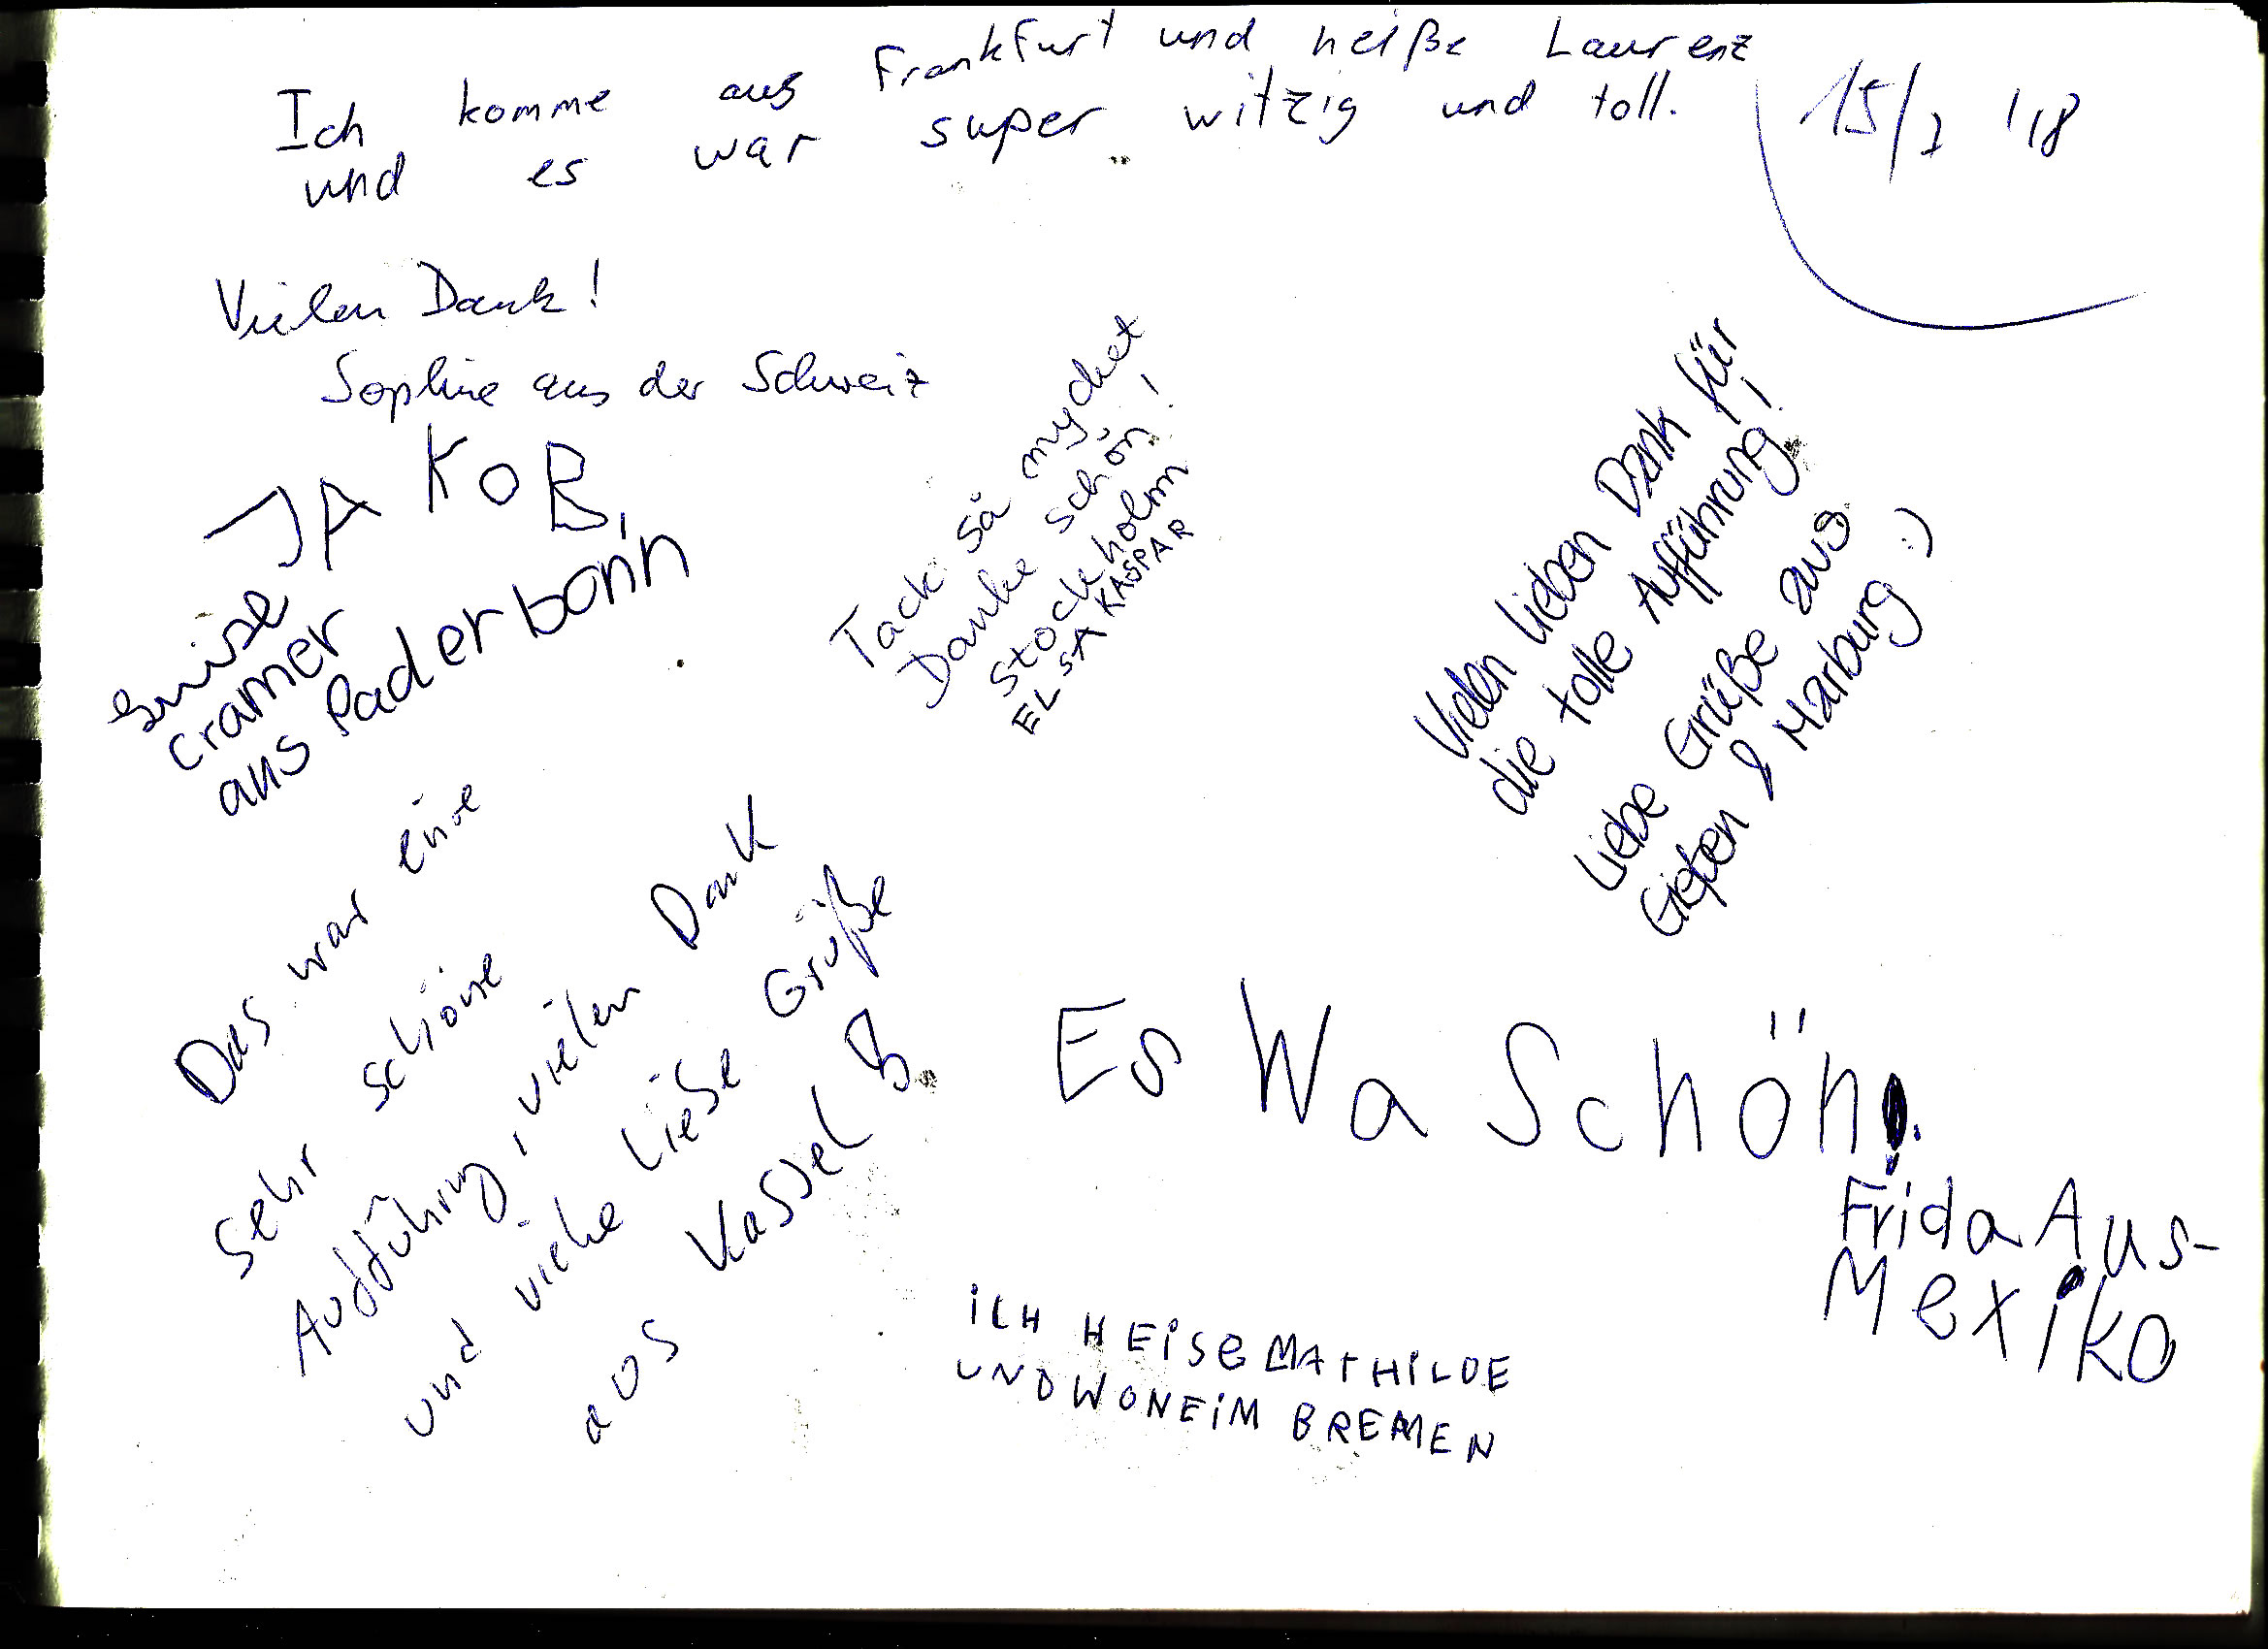 Ich komme aus Frankfurt und heiße Laurenz
und es war super witzig und toll.
15/7 '18
Vielen Dank!
Sophie aus der Schweiz
JAKOB,
Luise
Cramer
aus Paderborn
Tack så mycket
Danke schön!
Stockholm
ELSA KASPAR
Vielen lieben Dank für
die tolle Aufführung!
Liebe Grüße aus
Gießen & Marburg :)
Das war eine
sehr schöne
Aufführung, vielen Dank
und viele liebe Grüße
aus Kassel
Es Wa Schön!
Frida Aus-
Mexiko
iCH HEiSE MATHILDE
UND WONE iM BREMEN